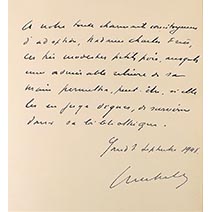 A notre toute charmante concitoyenne
d'adoption, Madame Charles
ces très modestes petits pois, auxquels
une admirable reliure de sa
main permettra, peut-être, si elle
les en juge dignes, de survivre
dans sa bibliothèque.
septembre 1908